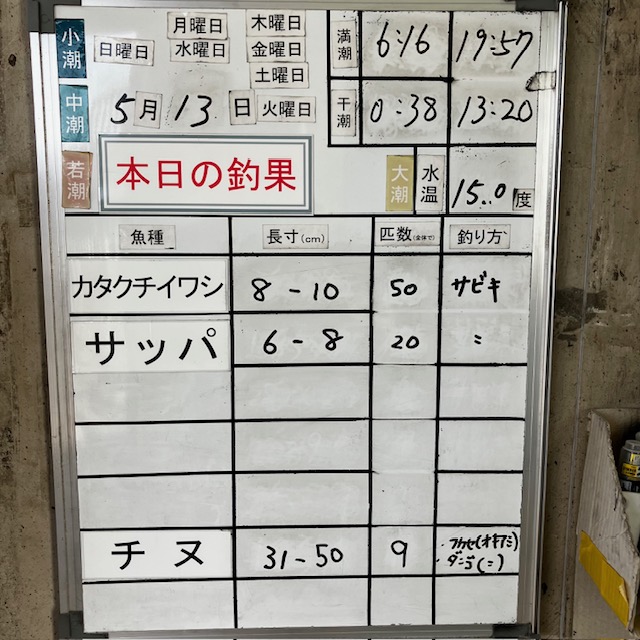 小潮 日曜日 月曜日 水曜日 木曜日 金曜日 土曜日 満潮 6:16 19:57
中潮 5月13日 火曜日 干潮 0:38 13:20
若潮 本日の釣果 大潮 水温 15.0度
魚種 長寸(cm) 匹数(全体で) 釣り方
カタクチイワシ 8-10 50 サビキ
サッパ 6-8 20 〃
チヌ 31-50 9 ・フカセ(オキアミ)
・ダンゴ(〃)